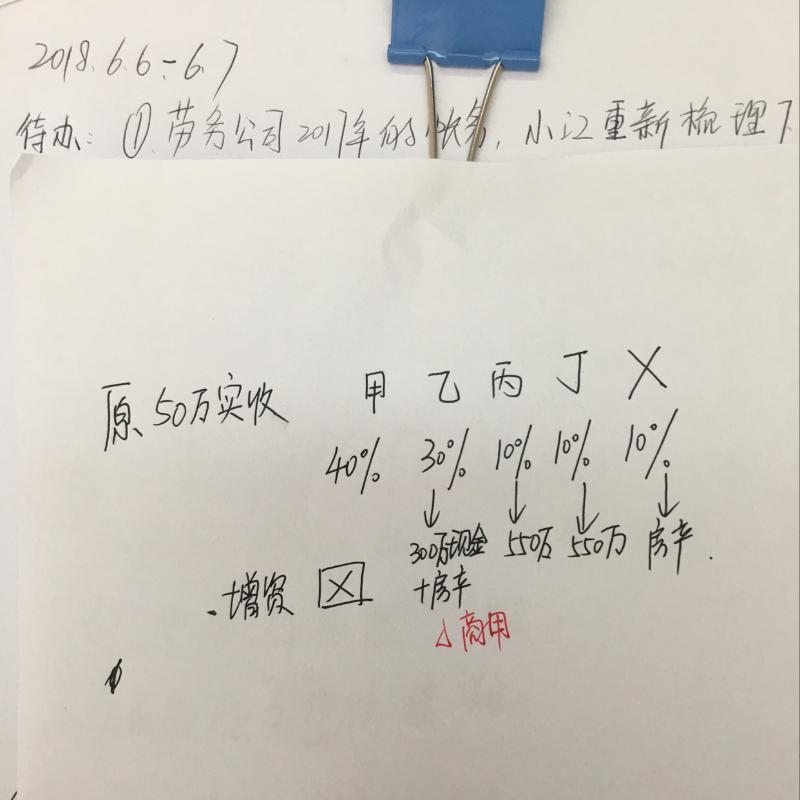 2018.6.6-6.7
待办: ① 劳务公司2017年的账务, 小江重新梳理下
原50万实收 甲 乙 丙 丁 X
40% 30% 10% 10% 10%
↓ ↓ ↓ ↓
300万现金 550万 550万 房产.
.增资 X +房产
商用